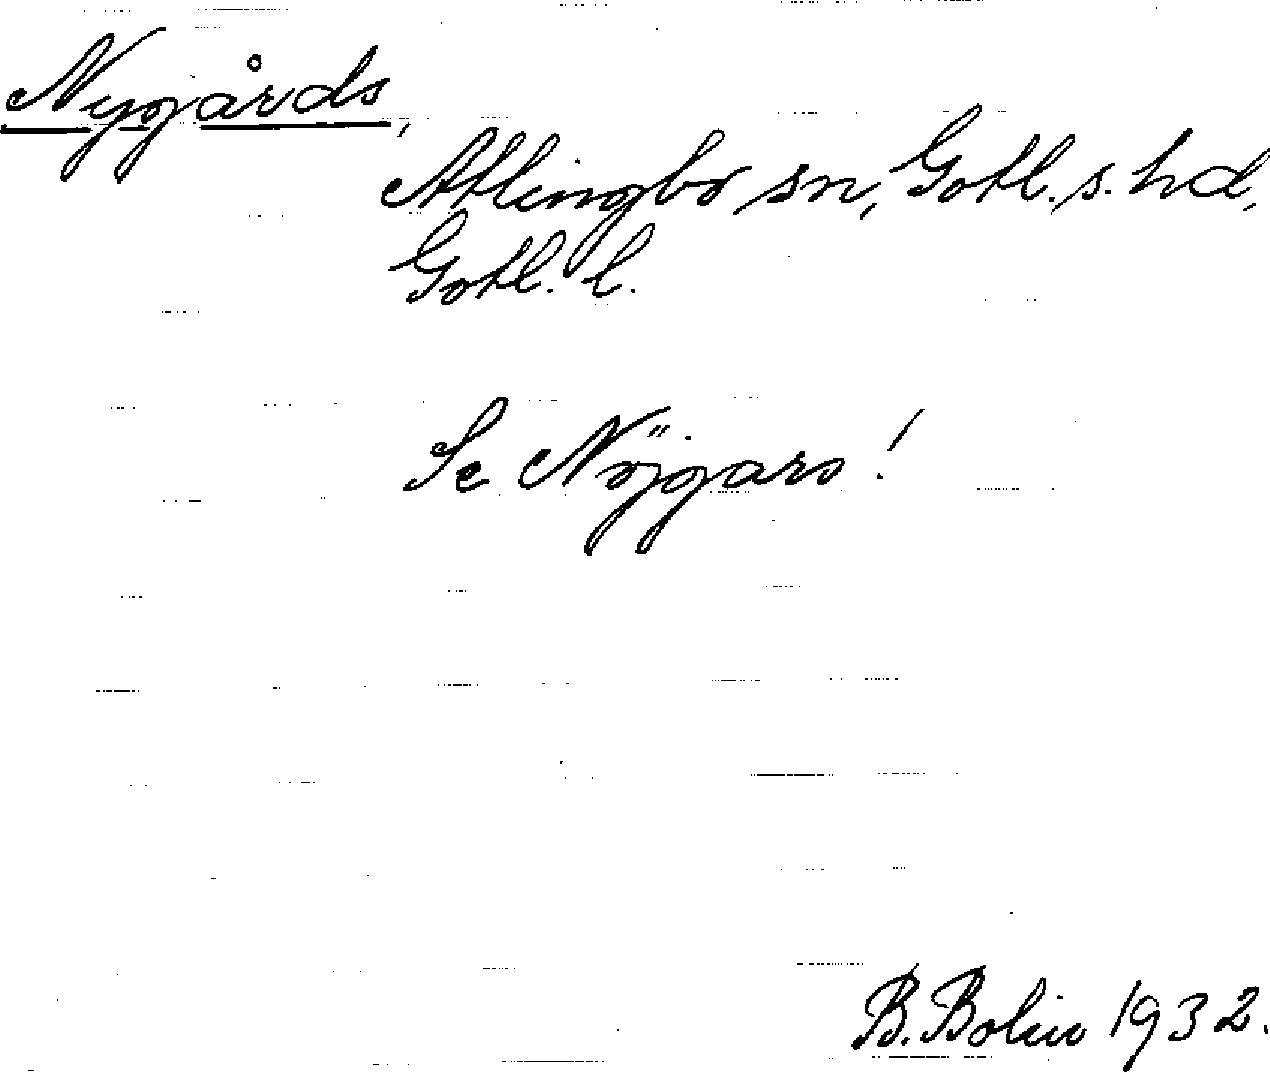 Nygårds,
Atlingbo sn, Gotl. s. hd,
Gotl. l.
Se Nöjgars!
B. Bolin 1932.